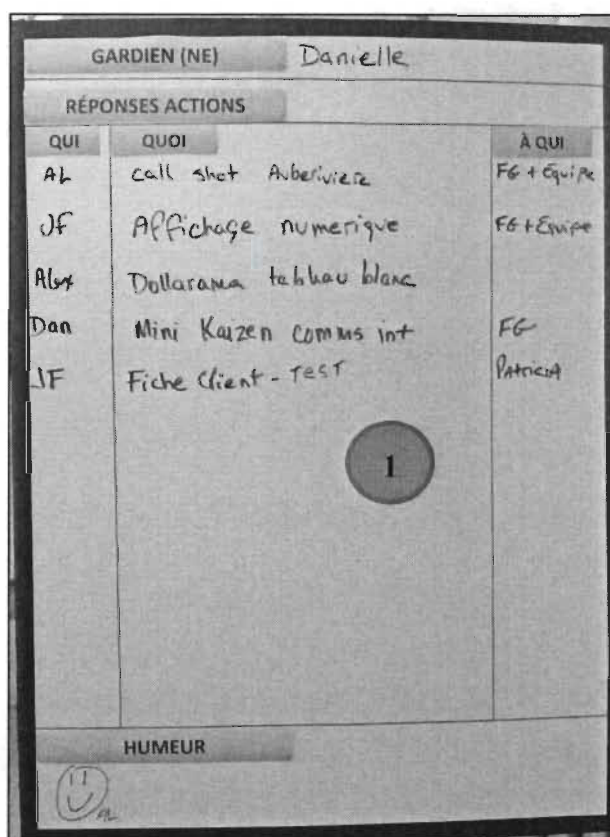 GARDIEN (NE) Danielle
RÉPONSES ACTIONS
QUI QUOI À QUI
AL call shot Auberiviere FG + Équipe
JF Affichage numerique FG + Équipe
Alex Dollarama tableau blanc
Dan Mini Kaizen comms int FG
JF Fiche Client - TEST PAtriciA
1
HUMEUR
AL